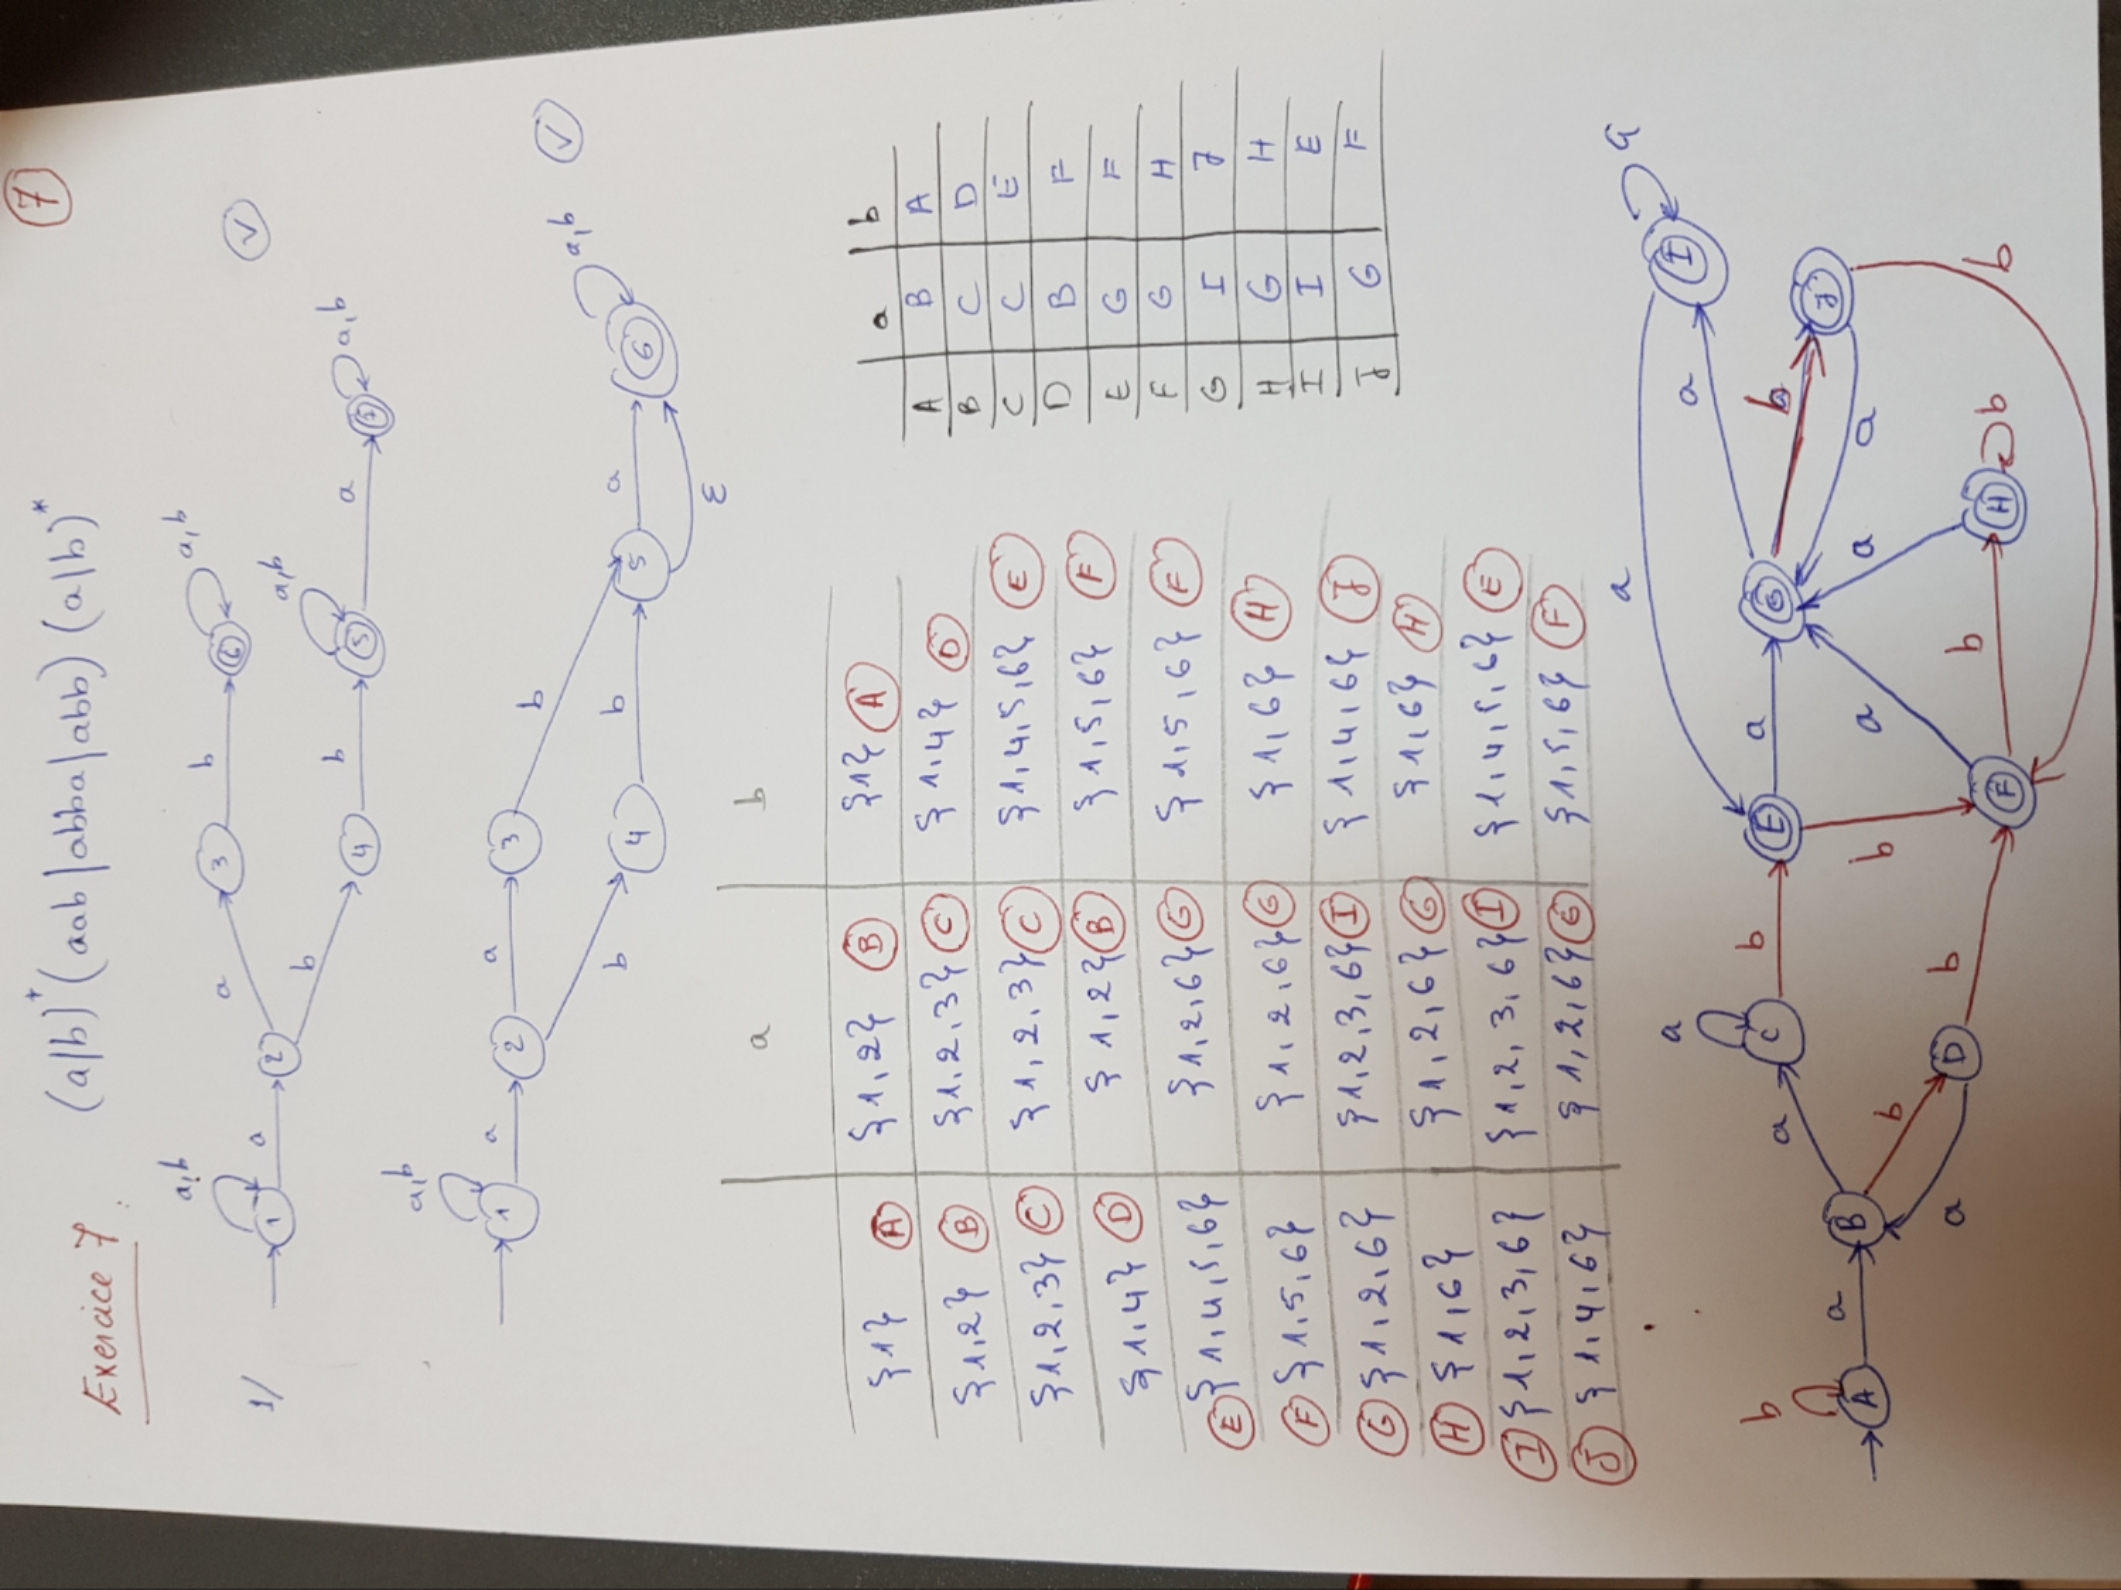 7
Exercice 7 :
(a|b)* (aab | abba | abb) (a|b)*
1/
1 a 2 a 3 b 6 a,b
a,b
b 4 b 5 a,b a 7 a,b
V
1 a 2 a 3 b 5 a 6 a,b
a,b
b 4 b ε
V
a b
{1} A {1,2} B {1} A
{1,2} B {1,2,3} C {1,4} D
{1,2,3} C {1,2,3} C {1,4,5,6} E
{1,4} D {1,2} B {1,5,6} F
E {1,4,5,6} {1,2,6} G {1,5,6} F
F {1,5,6} {1,2,6} G {1,6} H
G {1,2,6} {1,2,3,6} I {1,4,6} J
H {1,6} {1,2,6} G {1,6} H
I {1,2,3,6} {1,2,3,6} I {1,4,5,6} E
J {1,4,6} {1,2,6} G {1,5,6} F
a b
A B A
B C D
C C E
D B F
E G F
F G H
G I J
H G H
I I E
J G F
b a a a b a a a
A B C E G I
b a D b F b H b
b a a b J a b